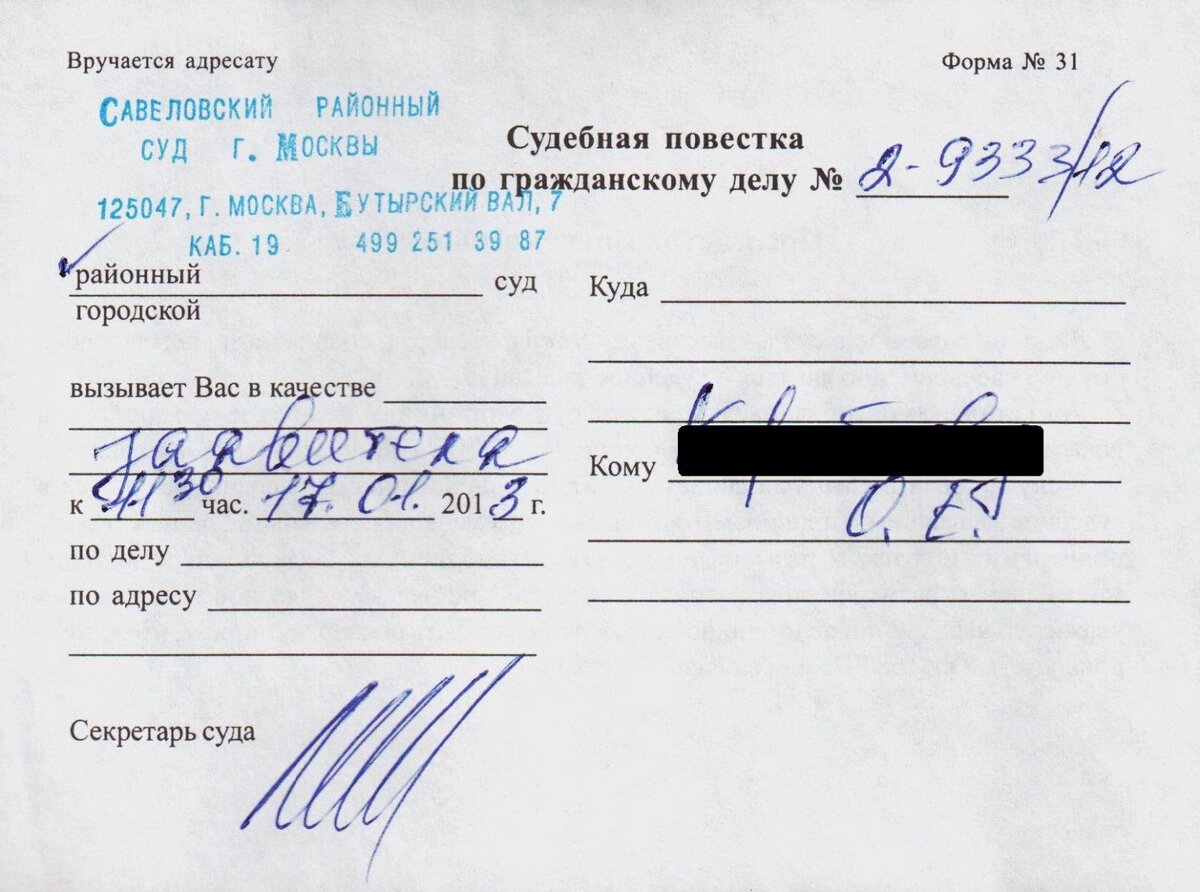 Вручается адресату
Форма № 31
САВЕЛОВСКИЙ РАЙОННЫЙ
СУД Г. МОСКВЫ
125047, Г. МОСКВА, БУТЫРСКИЙ ВАЛ, 7
КАБ. 19 499 251 39 87
Судебная повестка
по гражданскому делу № 2-9333/12
районный
городской
суд
вызывает Вас в качестве
заявителя
к 11 30 час. 17. 01. 2013 г.
по делу
по адресу
Секретарь суда
Куда
Кому
О. Е.